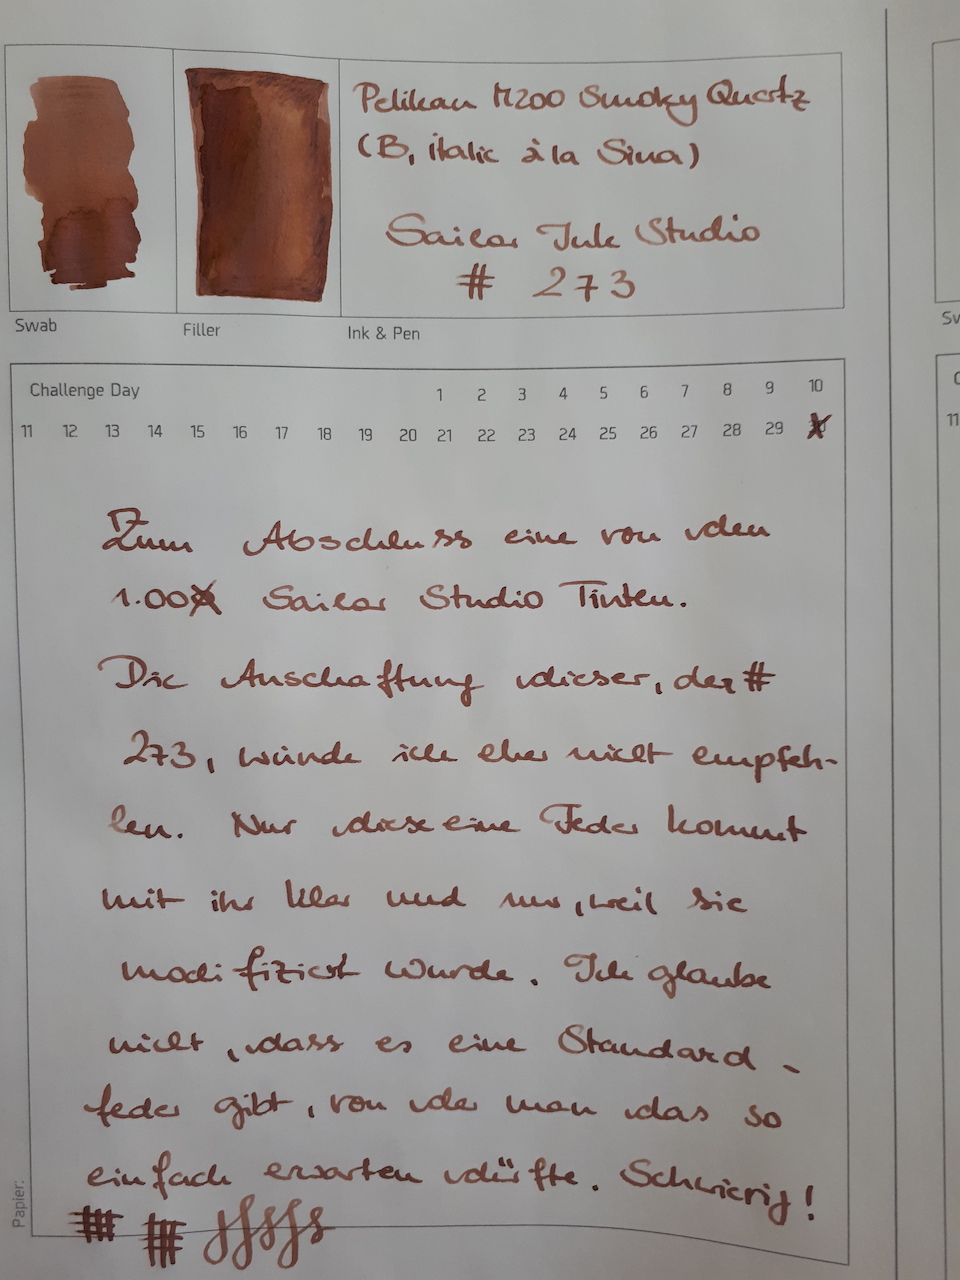 Pelikan M200 Smoky Quartz
(B, italic à la Sina)
Sailor Ink Studio
# 273
Swab
Filler
Ink & Pen
Challenge Day 1 2 3 4 5 6 7 8 9 10
11 12 13 14 15 16 17 18 19 20 21 22 23 24 25 26 27 28 29
Zum Abschluss eine von den
1.00 Sailor Studio Tinten.
Die Anschaffung dieser, der #
273, würde ich eher nicht empfeh-
len. Nur diese eine Feder kommt
mit ihr klar und nur, weil sie
modifiziert wurde. Ich glaube
nicht, dass es eine Standard-
feder gibt, von der man das so
einfach erwarten dürfte. Schwierig!
Papier:
Sw
11